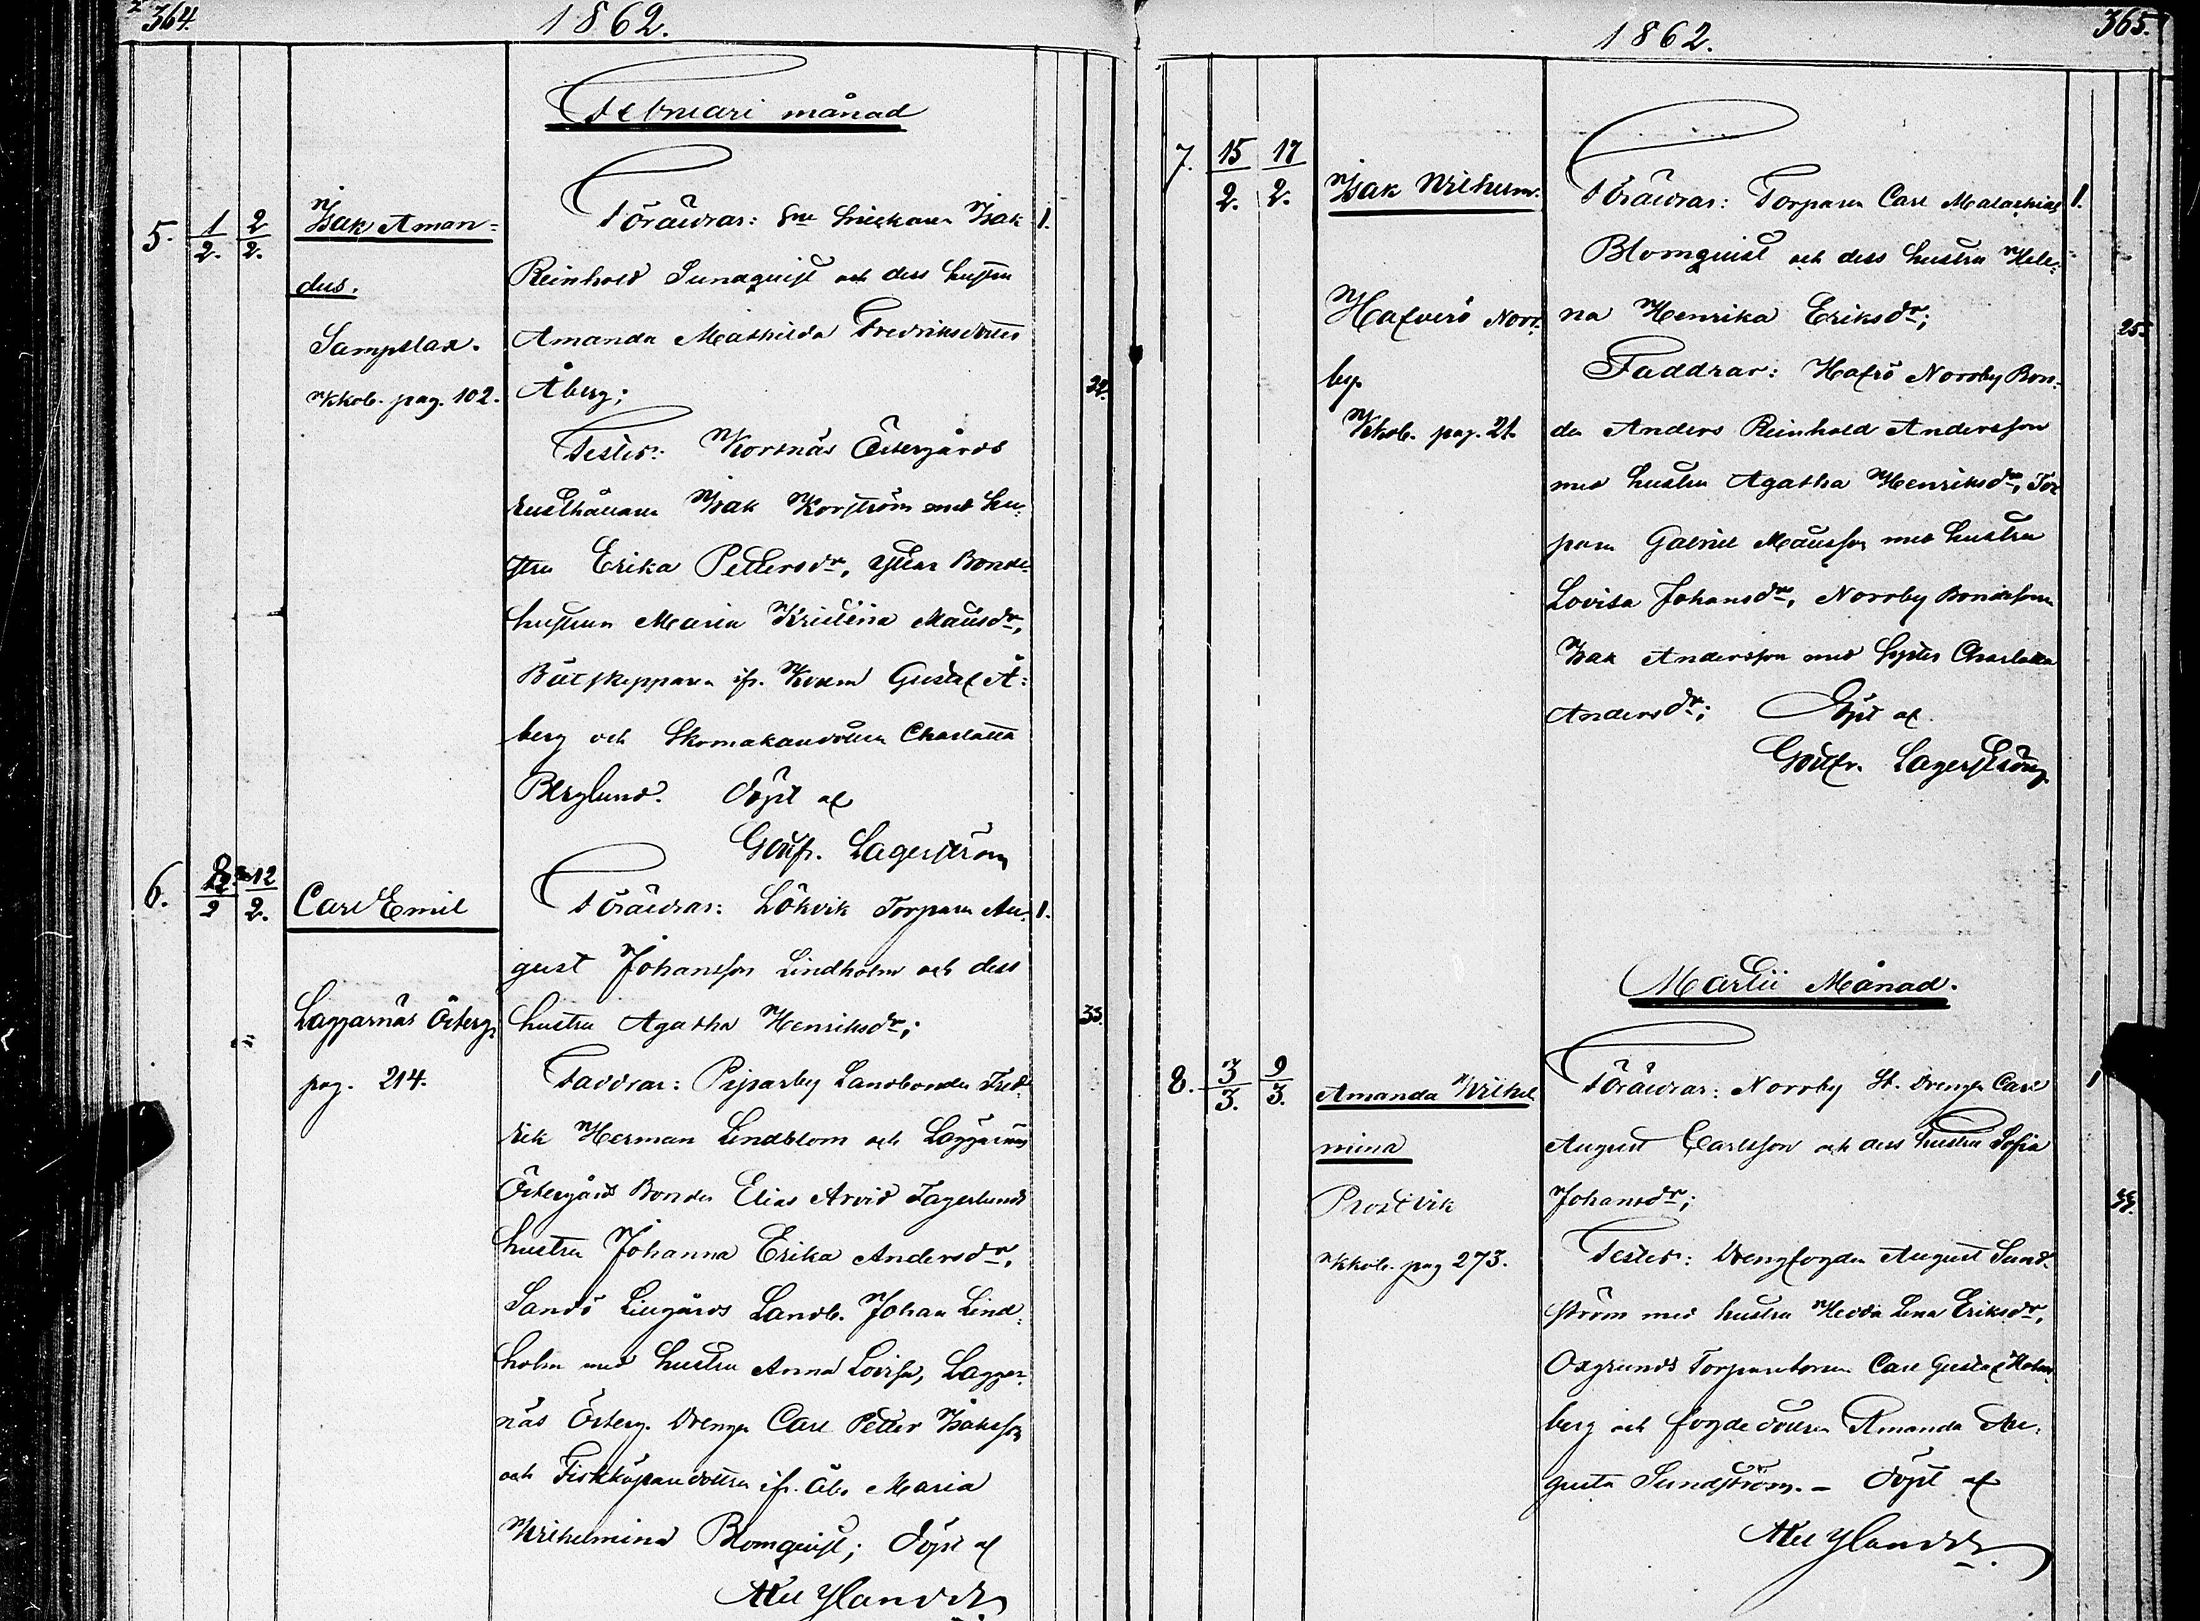 364.
1862.
Februari månad
5. 1/2. 2/2.
Isak Aman=
dus.
Sampelax.
Kkob. pag. 102.
Föräldrar: Isak 1.
Reinhold Sundqvist och dess hustru
Amanda Mathilda Fredriksdotter
Åberg;
32.
Testes: Korsnäs Östergårds
Rusthållaren Isak Korström med hu=
stru Erika Pettersdr, Bonde=
hustrun Maria Kristina Matsdr,
Båtskepparen ifr. Gustaf Å=
berg och Skomakaredottren Charlotta
Berglund. Döpt af
Gottfr. Lagerström
6. 2/2 12/2.
Carl Emil
Laggarnäs Österg.
pag. 214.
Föräldrar: Lökvik Torparen Au= 1.
gust Johansson Lindholm och dess
hustru Agatha Henriksdr;
33.
Faddrar: Piparby Landbonden Fred=
rik Herman Lindblom och Laggarnäs
Östergårds Bonden Elias Arvid Fagerlunds
hustru Johanna Erika Andersdr,
Sandö Lillgårds Landb. Johan Lind=
holm med hustru Anna Lovisa, Laggar=
näs Österg. Drengen Carl Petter Isaksson
och Fiskköparedottren ifr. Åbo Maria
Wilhelmina Blomqvist; Döpt af
365.
1862.
7. 15/2. 17/2.
Isak Wilhelm.
Hafverö Norr=
by.
Kkob. pag. 21.
Föräldrar: Torparen Carl Malachias 1.
Blomquist och dess hustru Hele=
na Henrika Eriksdr;
25.
Faddrar: Hafrö Norrby Bon=
den Anders Reinhold Andersson
med hustru Agatha Henriksdr, Tor
paren Gabriel Matsson med hustru
Lovisa Johansdr, Norrby Bondesonen
Isak Andersson med Syster Charlotta
Andersdr; Döpt af
Gottfr. Lagerström.
Martii Månad.
8. 3/3. 9/3.
Amanda Wilhel
mina
Prostvik
Kkob. pag 273.
Föräldrar: Norrby St. Drengen Carl 1
August Carlsson och dess hustru Sofia
Johansdr;
Testes: Drengfogden August Sund=
ström med hustru Hedda Lena Eriksdr,
Oxgrunds Torparesonen Carl Gustaf Holm=
berg och fogdedottren Amanda Au=
gusta Sundström. - Döpt af